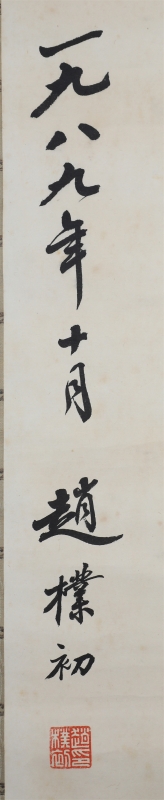 一九八九年十月 趙樸初
趙樸初印